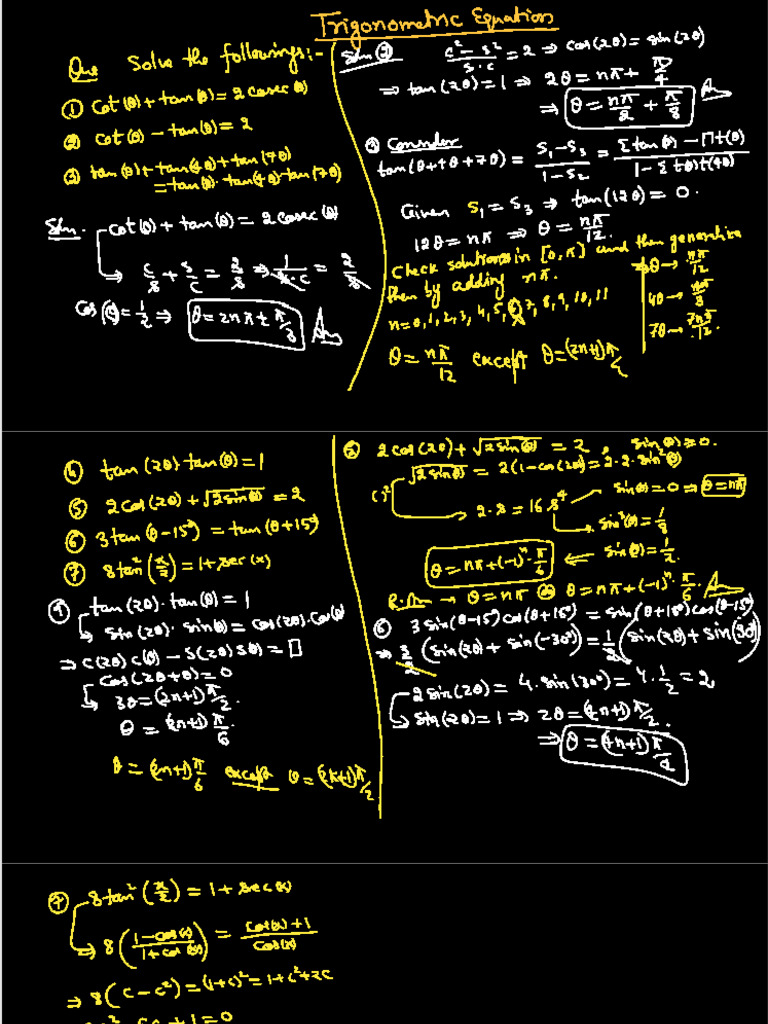 Trigonometric Equation
Que Solve the followings:-
① cot(θ)+tan(θ)=2cosec(θ)
② cot(θ)-tan(θ)=2
③ tan(θ)+tan(4θ)+tan(7θ)
=tan(θ)·tan(4θ)·tan(7θ)
Soln. cot(θ)+tan(θ)=2cosec(θ)
⇒ c/s + s/c = 2/s ⇒ 1/(s·c) = 2/s
cos(θ)=1/2 ⇒ θ=2nπ±π/3 Ans
Soln ② (c²-s²)/(s·c)=2 ⇒ cos(2θ)=sin(2θ)
⇒ tan(2θ)=1 ⇒ 2θ=nπ+π/4
⇒ θ=nπ/2+π/8 Ans
③ Consider
tan(θ+4θ+7θ)=(S₁-S₃)/(1-S₂)=(Σtan(θ)-Πt(θ))/(1-Σt(θ)t(4θ))
Given S₁=S₃ ⇒ tan(12θ)=0.
12θ=nπ ⇒ θ=nπ/12.
Check solutions in [0,π] and then generalize
then by adding nπ.
n=0,1,2,3,4,5,6,7,8,9,10,11
θ→nπ/12
4θ→
7θ→7nπ/12.
θ=nπ/12 except θ=(2n+1)π/
④ tan(2θ)tan(θ)=1
⑤ 2cos(2θ)+√(2sin(θ))=2
⑥ 3tan(θ-15°)=tan(θ+15°)
⑦ 8tan²(x/2)=1+sec(x)
④ tan(2θ)·tan(θ)=1
sin(2θ)·sinθ=cos(2θ).cos(θ)
⇒ c(2θ)c(θ)-s(2θ)s(θ)=0
cos(2θ+θ)=0
3θ=(2n+1)π/2.
θ=(2n+1)π/6.
θ=(2n+1)π/6 except θ=(2k+1)π/2
⑤ 2cos(2θ)+√(2sin(θ))=2, sin(θ)≥0.
√(2sin(θ))=2(1-cos(2θ))=2·2·sin²(θ)
( )² 2·s=16s⁴ sin(θ)=0 ⇒ θ=nπ
sin³(θ)=1/8
θ=nπ+(-1)ⁿ·π/6 ⇐ sin(θ)=1/2.
→ θ=nπ or θ=nπ+(-1)ⁿ·π/6. Ans
⑥ 3sin(θ-15°)cos(θ+15°)=sin(θ+15°)cos(θ-15°)
⇒ 3/2(sin(2θ)+sin(-30°))=1/2(sin(2θ)+sin(30°))
2sin(2θ)=4·sin(30°)=4·1/2=2
sin(2θ)=1 ⇒ 2θ=(4n+1)π/2.
⇒ θ=(4n+1)π/4
⑦ 8tan²(x/2)=1+sec(x)
⇒ 8((1-cos(x))/(1+cos(x)))=(cos(x)+1)/cos(x)
⇒ 8(c-c²)=(1+c)²=1+c²+2c
c²-6c+1=0